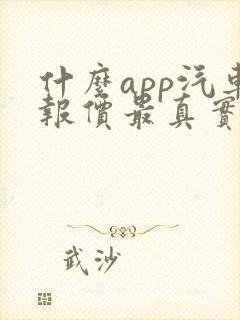 什麼app汽車
報價最真實
武沙